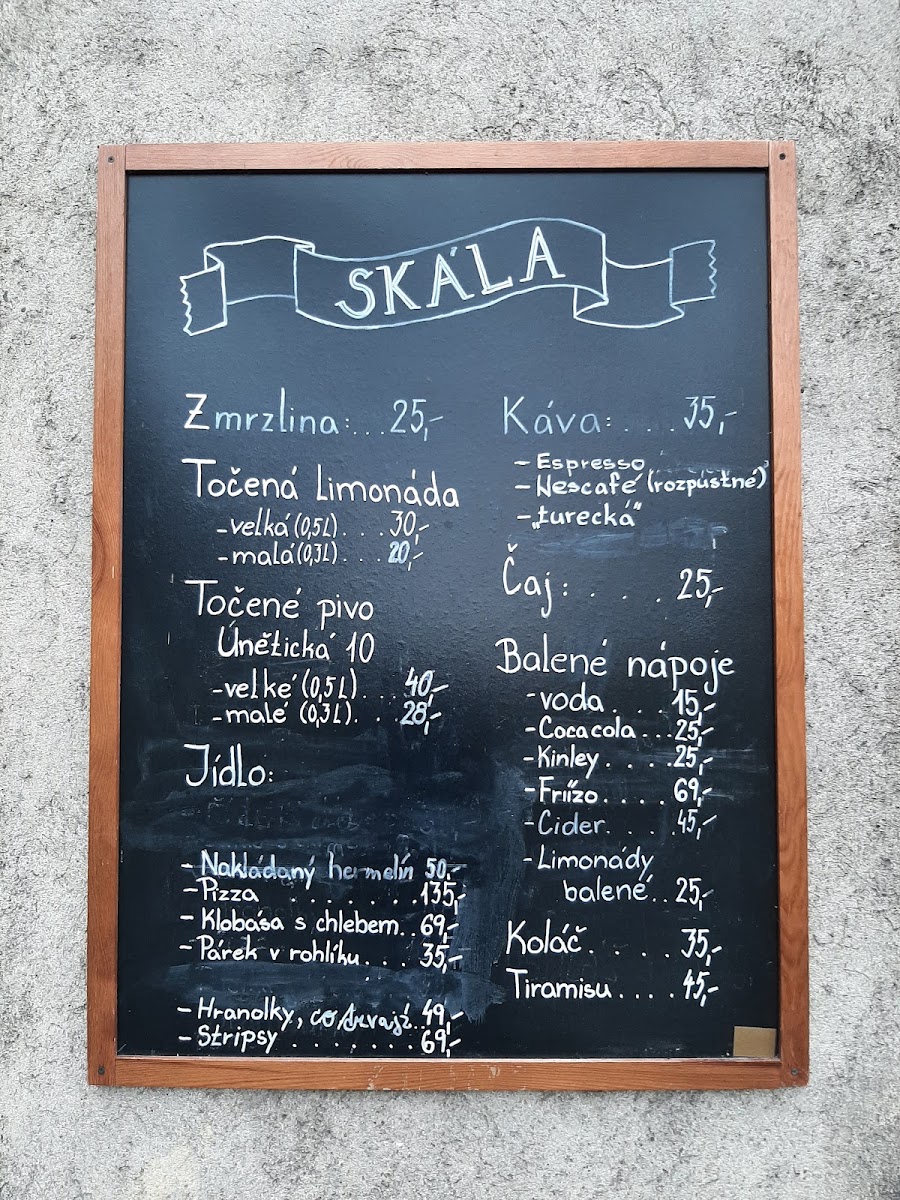 SKÁLA
Zmrzlina:...25,-
Točená Limonáda
-velká (0,5L)...30,-
-malá (0,3L)...20,-
Točené pivo
Únětická 10
-velké (0,5L)...40,-
-malé (0,3L)...28,-
Jídlo:
- Nakládaný hermelín 50,-
- Pizza .......135,-
- Klobása s chlebem..69,-
- Párek v rohlíku...35,-
- Hranolky, ..49,-
- Stripsy .......69,-
Káva:....35,-
- Espresso
- Nescafé (rozpustné)
- „turecká"
Čaj:....25,-
Balené nápoje
- voda...15,-
- Coca cola...25,-
- Kinley....25,-
- Friízo....69,-
- Cider....45,-
- Limonády
balené..25,-
Koláč.....35,-
Tiramisu....45,-